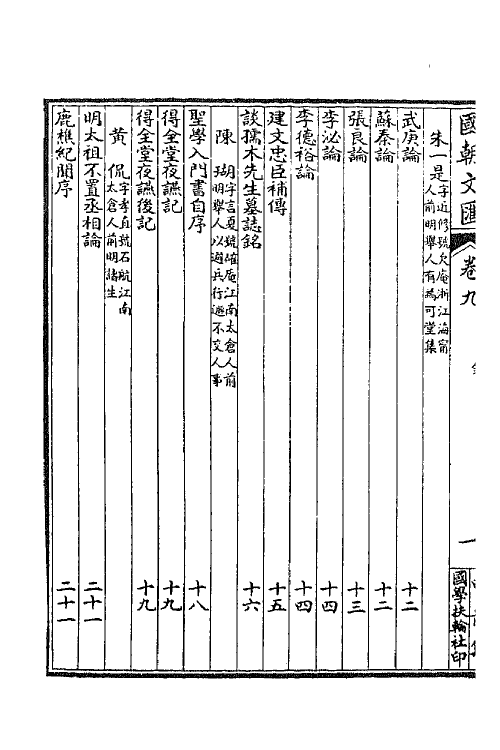 國朝文匯
卷九
一
國學扶輪社印
朱一是 字近修號欠庵浙江海甯人前明舉人有為可堂集
武庚論 十二
蘇秦論 十二
張良論 十三
李泌論 十四
李德裕論 十四
建文忠臣補傳 十五
談孺木先生墓誌銘 十六
陳瑚 字言夏號確庵江南太倉人前明舉人以避兵行遯不交人事
聖學入門書自序 十八
得全堂夜讌記 十九
得全堂夜讌後記 十九
黃侃 字孝直號石航江南太倉人前明諸生
明太祖不置丞相論 二十一
鹿樵紀聞序 二十一